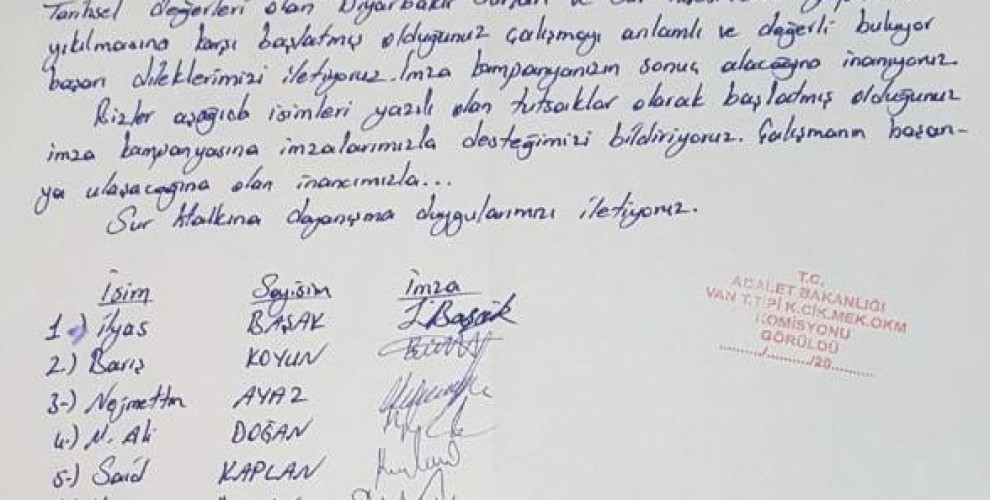 Tarihsel değerleri olan Diyarbakır
yıkılmasına karşı başlatmış olduğunuz çalışmayı anlamlı ve değerli buluyor
başarı dileklerimizi iletiyoruz. İmza kampanyanızın sonuç alacağına inanıyoruz.
Bizler aşağıda isimleri yazılı olan tutsaklar olarak başlatmış olduğunuz
imza kampanyasına imzalarımızla desteğimizi bildiriyoruz. Çalışmanın başarı-
ya ulaşacağına olan inancımızla...
Sur Halkına dayanışma duygularımızı iletiyoruz.
İsim Soyisim İmza
1-) İlyas BAŞAK İ.Başak
2.) Barış KOYUN
3-) Nejmettin AYAZ
4.) M. Ali DOĞAN
5-) Said KAPLAN
T.C.
ADALET BAKANLIĞI
VAN T.TİPİ K.CİK.MEK.OKM
KOMİSYONU
GÖRÜLDÜ
........../........../20..........